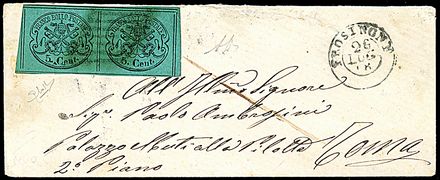 FRANCO BOLLO POSTALE FRANCO BOLLO POSTALE
5 Cent. 5 Cent.
FROSINONE
26
LUG
All' Ill'mo Signore
Sig. Paolo Ambrosini
Palazzo Muti alla Pilotta
2° Piano Roma